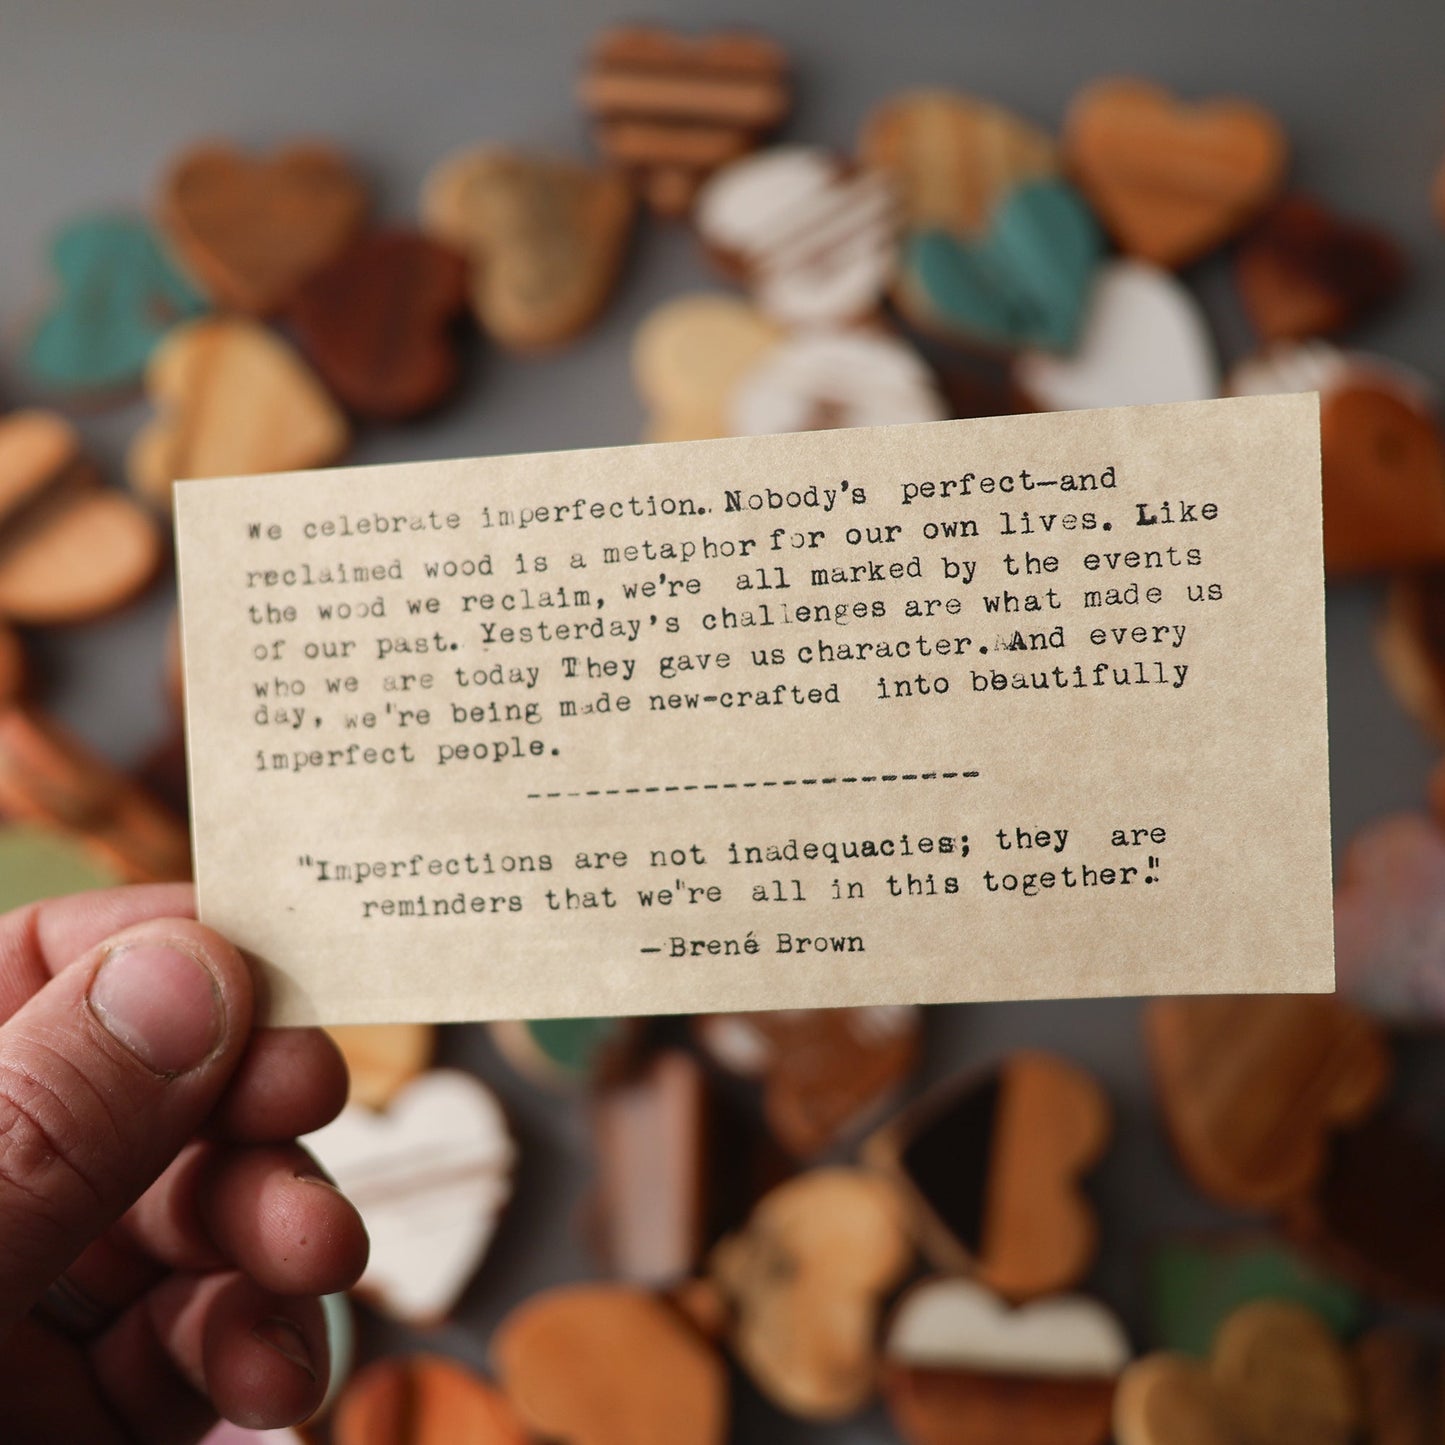 We celebrate imperfection. Nobody's perfect—and
reclaimed wood is a metaphor for our own lives. Like
the wood we reclaim, we're all marked by the events
of our past. Yesterday's challenges are what made us
who we are today They gave us character. And every
day, we're being made new-crafted into beautifully
imperfect people.
-----------------------
"Imperfections are not inadequacies; they are
reminders that we"re all in this together."
—Brené Brown